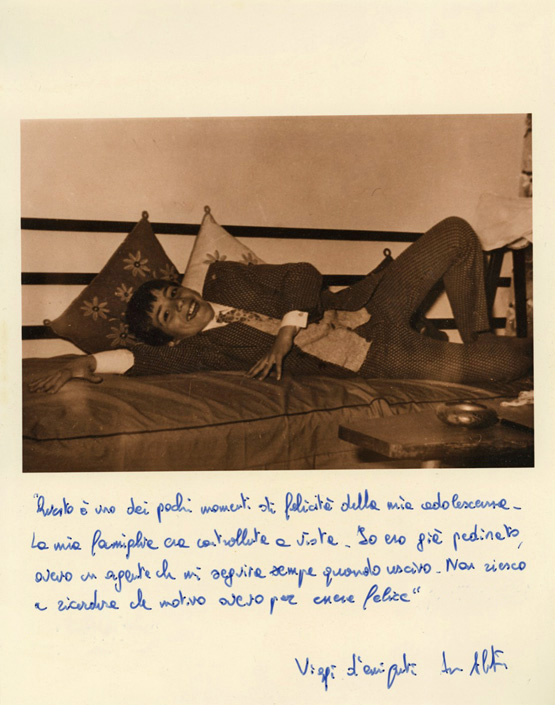 "Questo è uno dei pochi momenti di felicità della mia adolescenza -
La mia famiglia era controllata a vista - Io ero già pedinato,
avevo un agente che mi seguiva sempre quando uscivo - Non riesco
a ricordare che motivo avevo per essere felice"
Viaggi d'